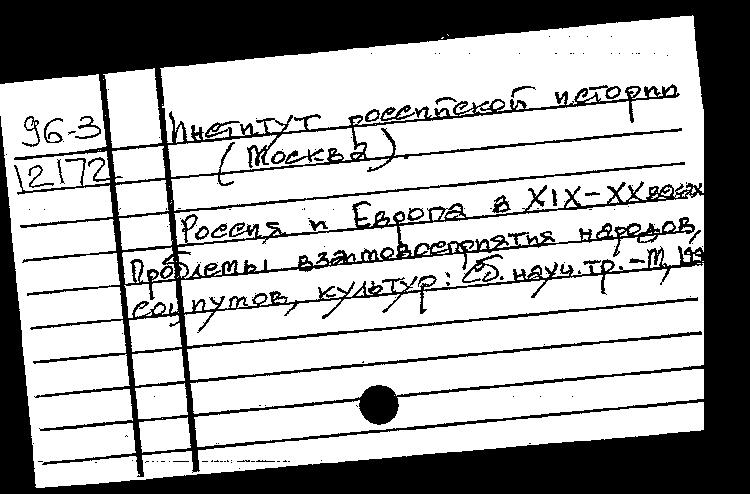 96-3
12172
Институт российской истории
(Москва).
Россия и Европа в XIX-XX веках
Проблемы взаимовосприятия народов,
социумов, культур: Сб. науч. тр. - М,